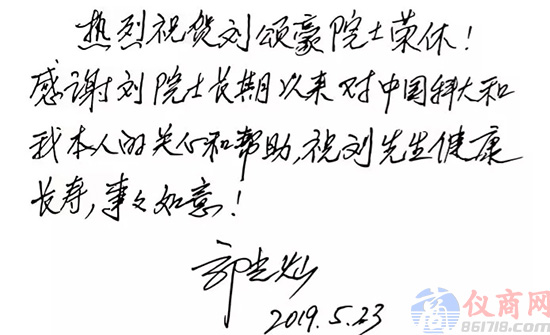 热烈祝贺刘颂豪院士荣休!
感谢刘院士长期以来对中国科大和
我本人的关心和帮助,祝刘先生健康
长寿,事々如意!
郭光灿
2019.5.23
仪商网
861718.com